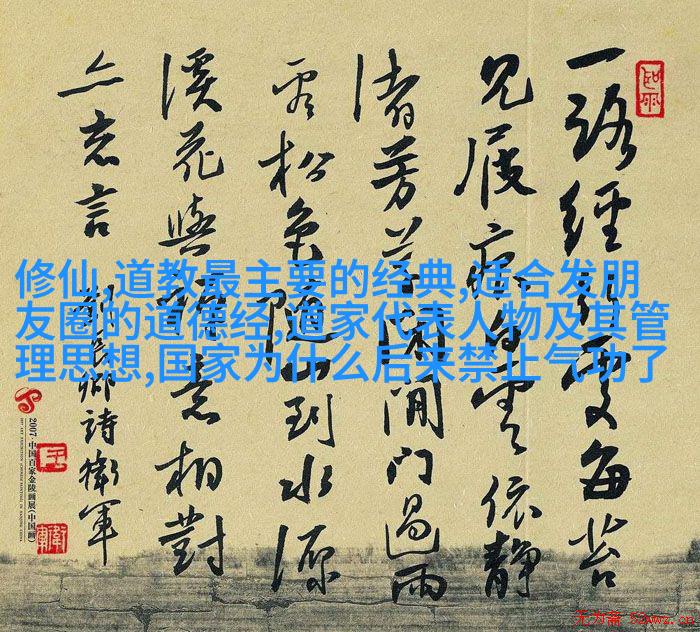 修仙,道教最主要的经典,适合发朋
友圈的道德经,道家代表人物及其管
理思想,国家为什么后来禁止气功了
一路經行處莓苔
見屐痕白雲依靜
渚芳草閉閒門過雨
看松色隨山到水源
溪花與禪意相對
亦忘言 劉長卿詩 衛軍
2007·中国百家金陵画展(中国画)
无为斋 52wwz.cn